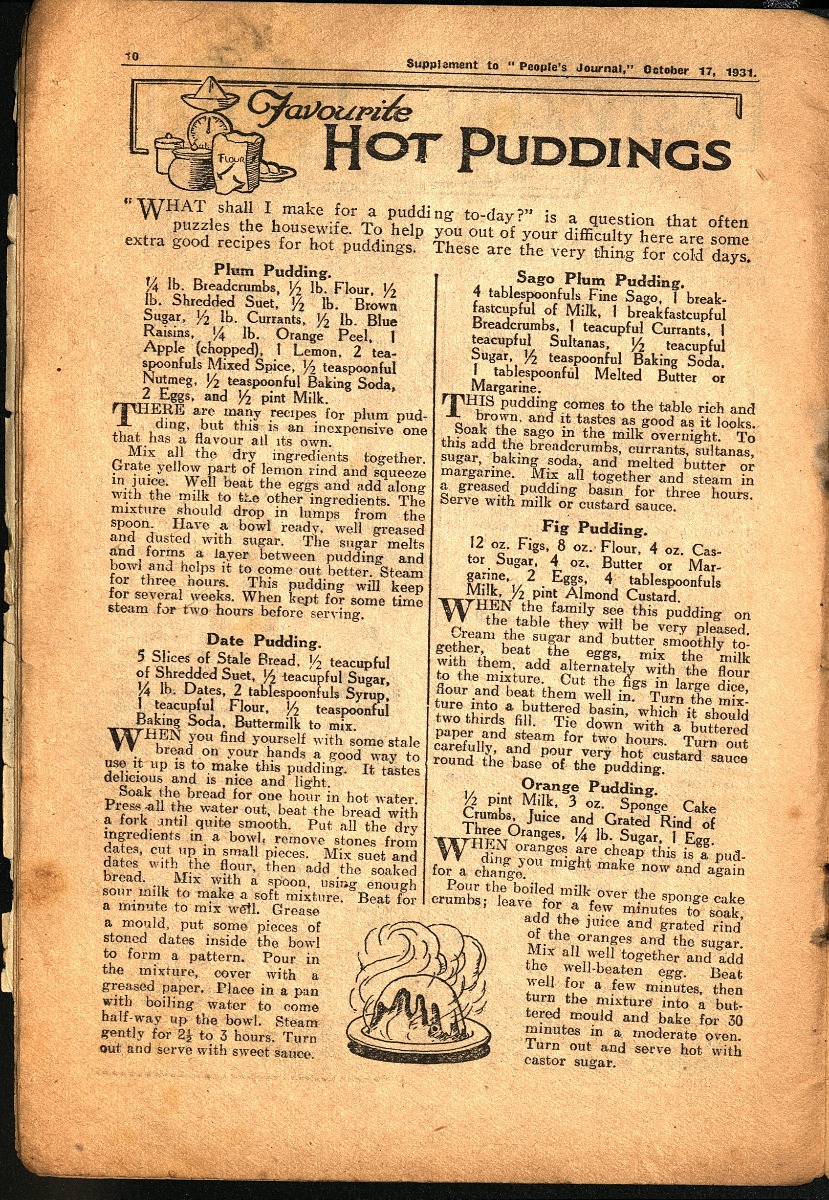 10
Supplement to "People's Journal," October 17, 1931.
Favourite
HOT PUDDINGS
FLOUR
"WHAT shall I make for a pudding to-day?" is a question that often
puzzles the housewife. To help you out of your difficulty here are some
extra good recipes for hot puddings. These are the very thing for cold days.
Plum Pudding.
¼ lb. Breadcrumbs, ½ lb. Flour, ½
lb. Shredded Suet, ½ lb. Brown
Sugar, ½ lb. Currants, ½ lb. Blue
Raisins, ¼ lb. Orange Peel, 1
Apple (chopped), 1 Lemon, 2 tea-
spoonfuls Mixed Spice, ½ teaspoonful
Nutmeg, ½ teaspoonful Baking Soda,
2 Eggs, and ½ pint Milk.
THERE are many recipes for plum pud-
ding, but this is an inexpensive one
that has a flavour all its own.
Mix all the dry ingredients together.
Grate yellow part of lemon rind and squeeze
in juice. Well beat the eggs and add along
with the milk to the other ingredients. The
mixture should drop in lumps from the
spoon. Have a bowl ready, well greased
and dusted with sugar. The sugar melts
and forms a layer between pudding and
bowl and helps it to come out better. Steam
for three hours. This pudding will keep
for several weeks. When kept for some time
steam for two hours before serving.
Date Pudding.
5 Slices of Stale Bread, ½ teacupful
of Shredded Suet, ½ teacupful Sugar,
¼ lb. Dates, 2 tablespoonfuls Syrup,
1 teacupful Flour, ½ teaspoonful
Baking Soda, Buttermilk to mix.
WHEN you find yourself with some stale
bread on your hands a good way to
use it up is to make this pudding. It tastes
delicious and is nice and light.
Soak the bread for one hour in hot water.
Press all the water out, beat the bread with
a fork until quite smooth. Put all the dry
ingredients in a bowl, remove stones from
dates, cut up in small pieces. Mix suet and
dates with the flour, then add the soaked
bread. Mix with a spoon, using enough
sour milk to make a soft mixture. Beat for
a minute to mix well. Grease
a mould, put some pieces of
stoned dates inside the bowl
to form a pattern. Pour in
the mixture, cover with a
greased paper. Place in a pan
with boiling water to come
half-way up the bowl. Steam
gently for 2½ to 3 hours. Turn
out and serve with sweet sauce.
Sago Plum Pudding.
4 tablespoonfuls Fine Sago, 1 break-
fastcupful of Milk, 1 breakfastcupful
Breadcrumbs, 1 teacupful Currants, 1
teacupful Sultanas, ½ teacupful
Sugar, ½ teaspoonful Baking Soda,
1 tablespoonful Melted Butter or
Margarine.
THIS pudding comes to the table rich and
brown, and it tastes as good as it looks.
Soak the sago in the milk overnight. To
this add the breadcrumbs, currants, sultanas,
sugar, baking soda, and melted butter or
margarine. Mix all together and steam in
a greased pudding basin for three hours.
Serve with milk or custard sauce.
Fig Pudding.
12 oz. Figs, 8 oz. Flour, 4 oz. Cas-
tor Sugar, 4 oz. Butter or Mar-
garine, 2 Eggs, 4 tablespoonfuls
Milk, ½ pint Almond Custard.
WHEN the family see this pudding on
the table they will be very pleased.
Cream the sugar and butter smoothly to-
gether, beat the eggs, mix the milk
with them, add alternately with the flour
to the mixture. Cut the figs in large dice,
flour and beat them well in. Turn the mix-
ture into a buttered basin, which it should
two thirds fill. Tie down with a buttered
paper and steam for two hours. Turn out
carefully, and pour very hot custard sauce
round the base of the pudding.
Orange Pudding.
½ pint Milk, 3 oz. Sponge Cake
Crumbs, Juice and Grated Rind of
Three Oranges, ¼ lb. Sugar, 1 Egg.
WHEN oranges are cheap this is a pud-
ding you might make now and again
for a change.
Pour the boiled milk over the sponge cake
crumbs; leave for a few minutes to soak,
add the juice and grated rind
of the oranges and the sugar.
Mix all well together and add
the well-beaten egg. Beat
well for a few minutes, then
turn the mixture into a but-
tered mould and bake for 30
minutes in a moderate oven.
Turn out and serve hot with
castor sugar.